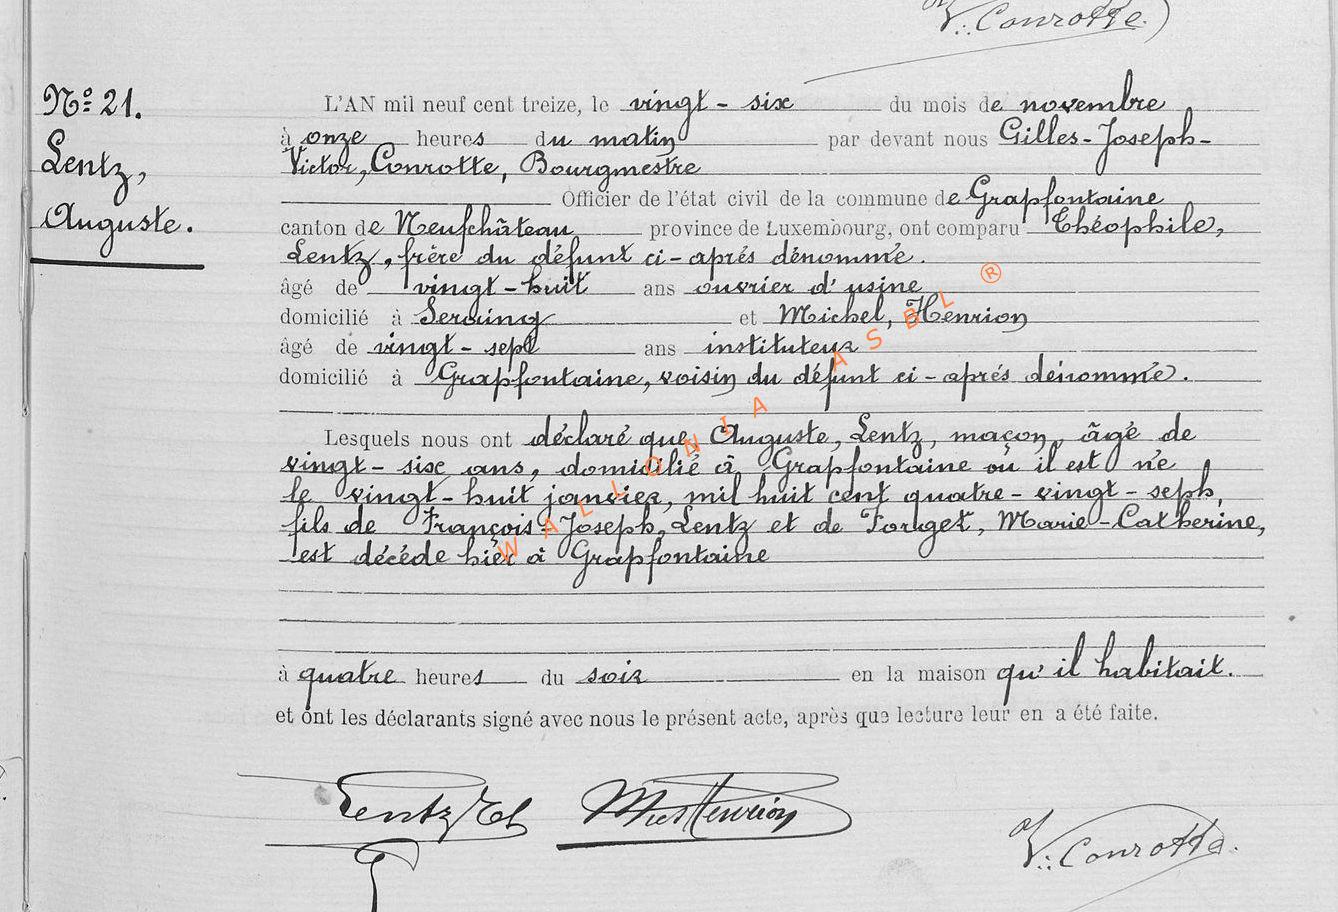 V. Conrotte.
N° 21.
Lentz,
Auguste.
L'AN mil neuf cent treize, le vingt-six du mois de novembre
à onze heures du matin par devant nous Gilles-Joseph-
Victor, Conrotte, Bourgmestre
Officier de l'état civil de la commune de Grapfontaine
canton de Neufchâteau province de Luxembourg, ont comparu Théophile,
Lentz, frère du défunt ci-après dénommé.
âgé de vingt-huit ans ouvrier d'usine
domicilié à Seraing et Michel, Henrion
âgé de vingt-sept ans instituteur
domicilié à Grapfontaine, voisin du défunt ci-après dénommé.
Lesquels nous ont déclaré que Auguste, Lentz, maçon, âgé de
vingt-six ans, domicilié à Grapfontaine où il est né
le vingt-huit janvier, mil huit cent quatre-vingt-sept,
fils de François-Joseph, Lentz et de Forget, Marie-Catherine,
est décédé hier à Grapfontaine
à quatre heures du soir en la maison qu'il habitait.
et ont les déclarants signé avec nous le présent acte, après que lecture leur en a été faite.
Lentz Th Mel Henrion
V. Conrotte.
WALLONIA ASBL ®